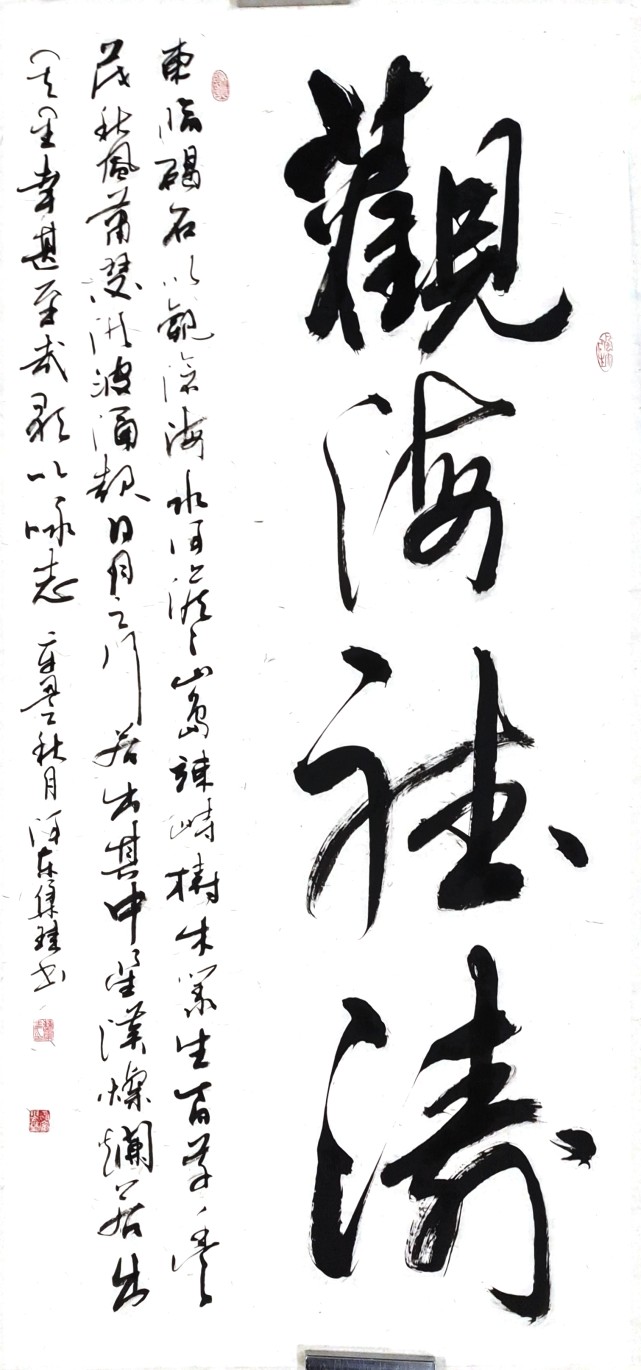 觀海聽濤
東臨碣石以觀滄海水何澹々山島竦峙樹木叢生百草豐
茂秋風蕭瑟洪波涌起日月之行若出其中星漢燦爛若出
其里幸甚至哉歌以咏志 秋月河東書